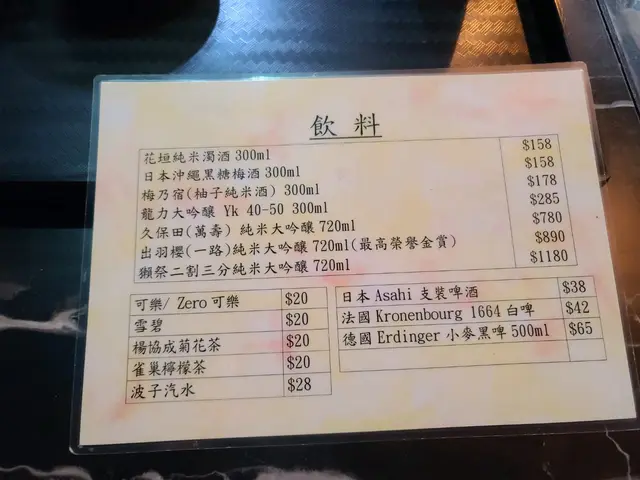 飲料
花垣純米濁酒 300ml $158
日本沖繩黑糖梅酒 300ml $158
梅乃宿(柚子純米酒) 300ml $178
龍力大吟釀 Yk 40-50 300ml $285
久保田(萬壽) 純米大吟釀 720ml $780
出羽櫻(一路)純米大吟釀 720ml(最高榮譽金賞) $890
獺祭二割三分純米大吟釀 720ml $1180
可樂/ Zero 可樂 $20
雪碧 $20
楊協成菊花茶 $20
雀巢檸檬茶 $20
波子汽水 $28
日本 Asahi 支裝啤酒 $38
法國 Kronenbourg 1664 白啤 $42
德國 Erdinger 小麥黑啤 500ml $65